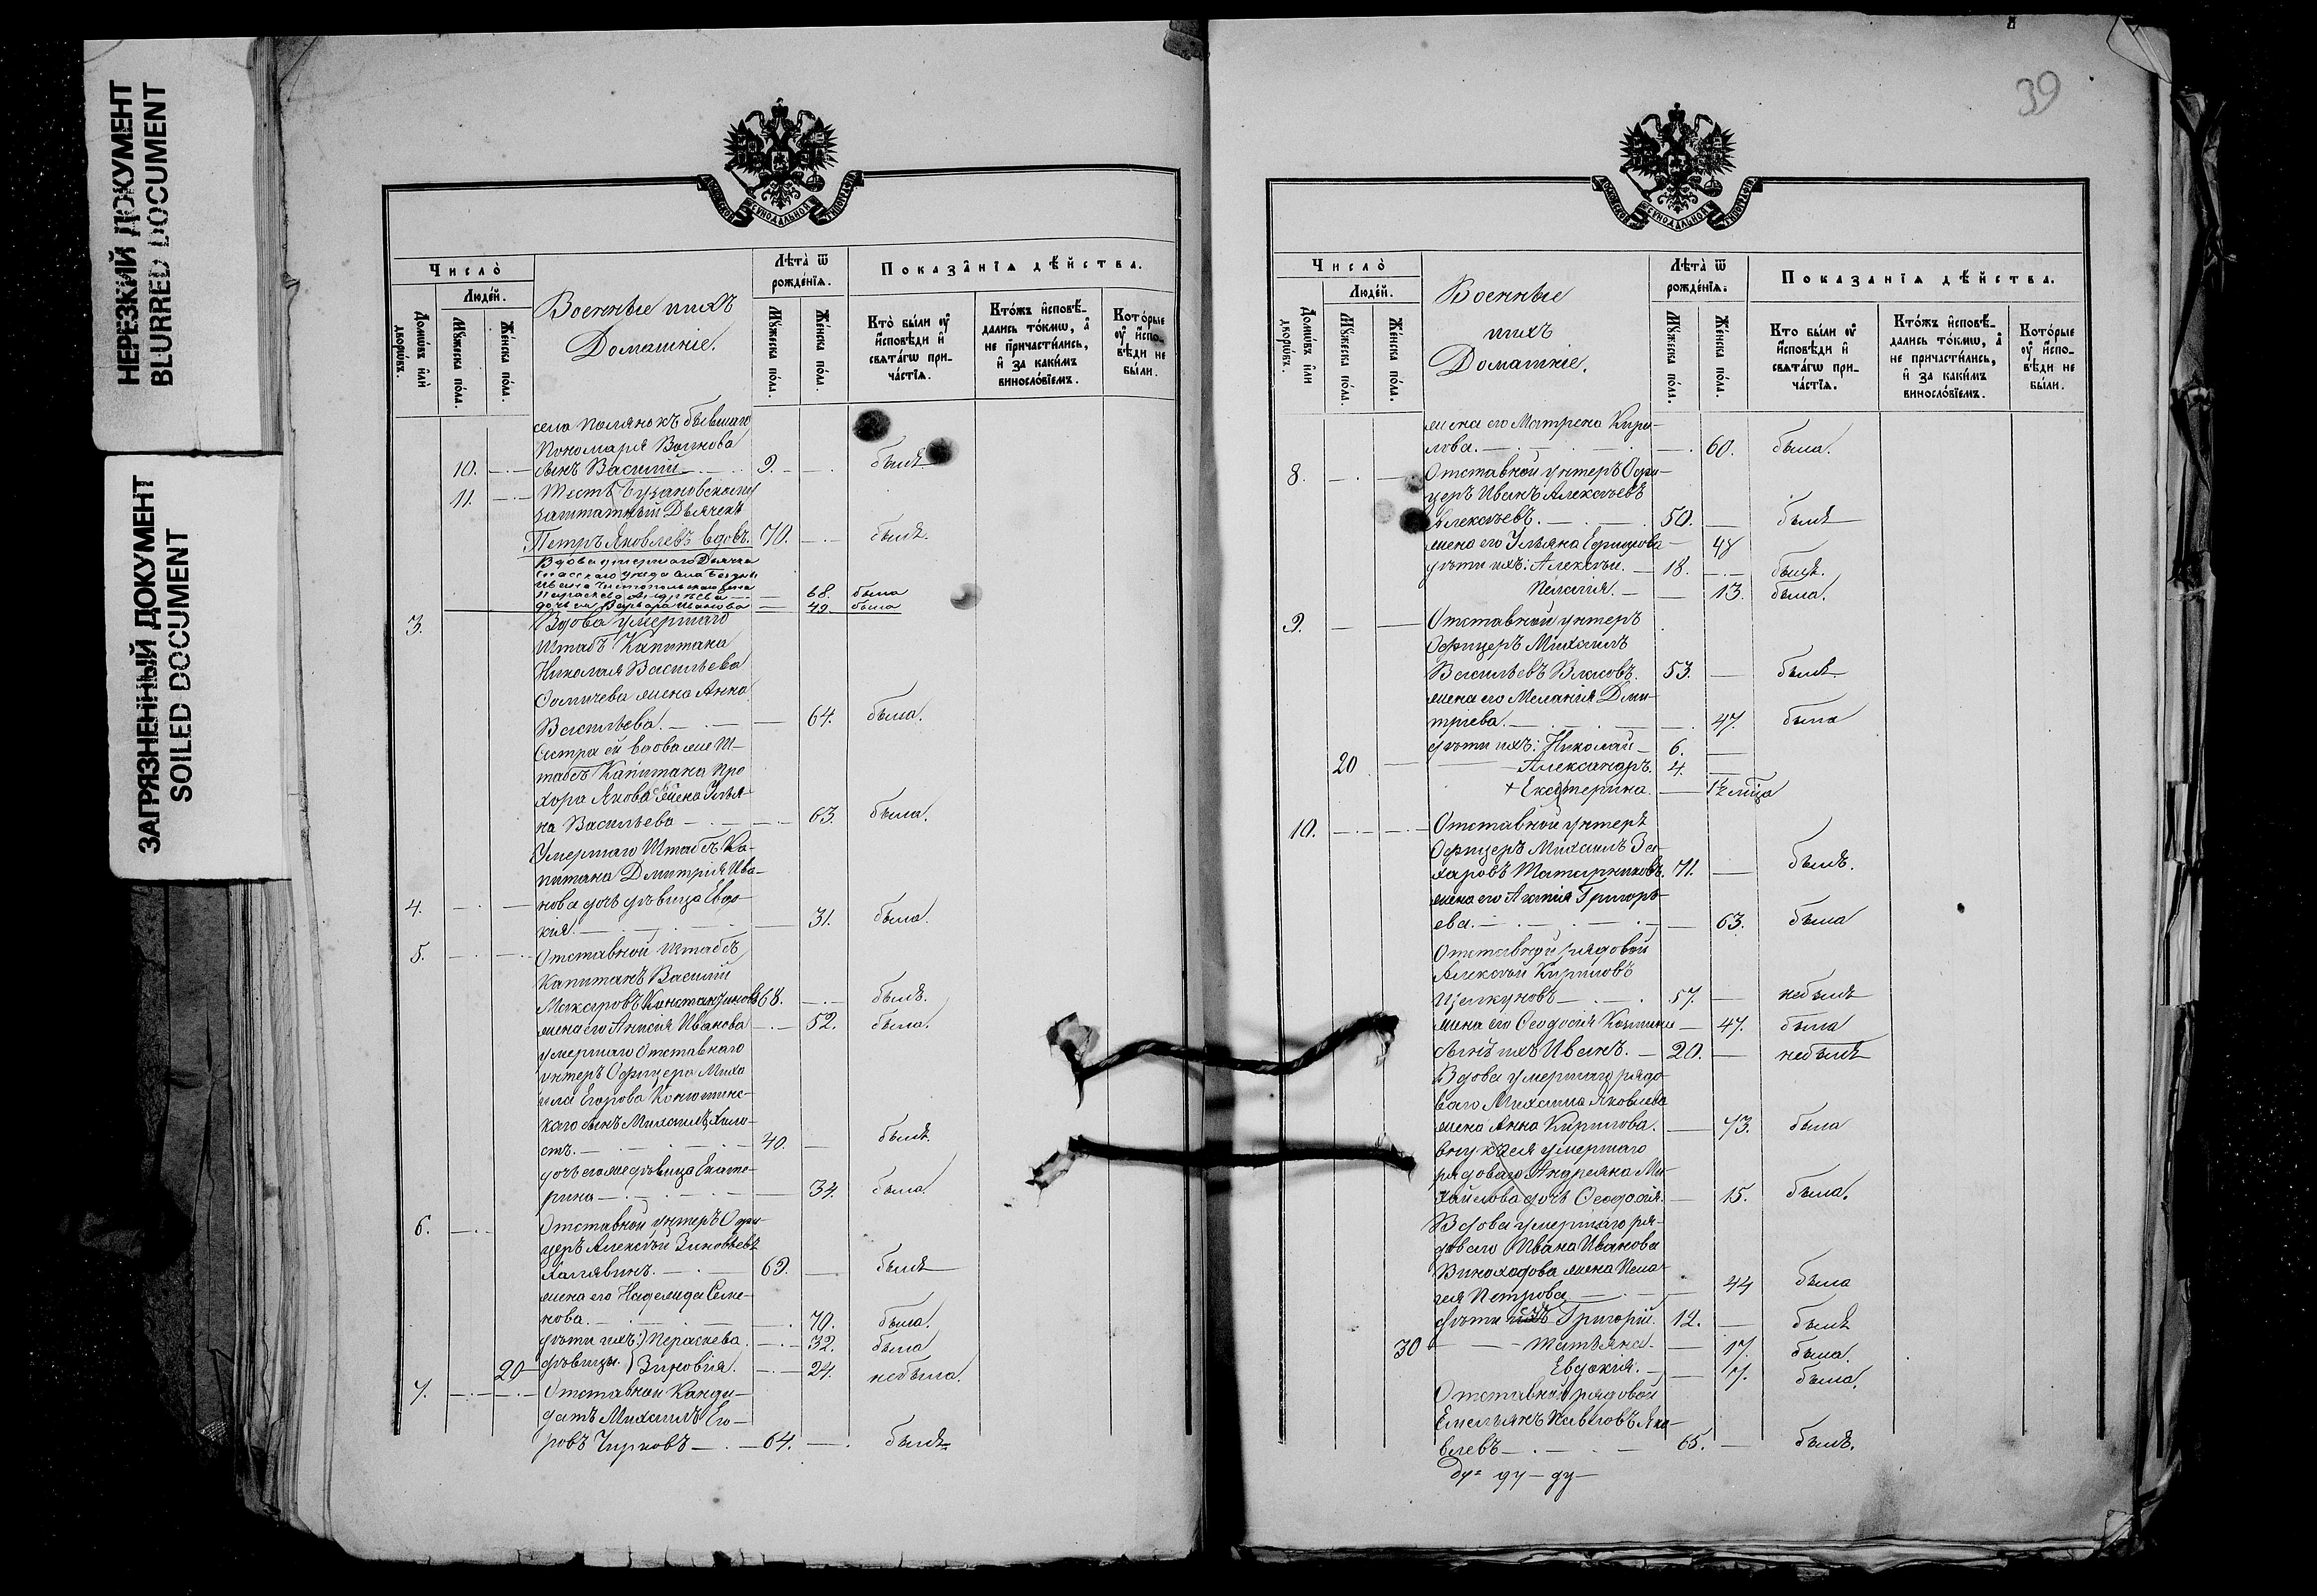 НЕРЕЗКИЙ ДОКУМЕНТ
BLURRED DOCUMENT
ЗАГРЯЗНЕННЫЙ ДОКУМЕНТ
SOILED DOCUMENT
МОСКОВСКОЙ СУНОДАЛЬНОЙ ТИПОГРАФІИ
Число̀
Людей.
Домѡвъ и҆лѝ дворѡвъ.
Мꙋжеска пола.
Женска пола.
Военные и ихъ
Домашніе.
Лѣта̀ ѿ рожденїѧ.
Мꙋжеска пола.
Женска пола.
Показанїѧ дѣйства.
Кто̀ были ᲂу҆ и҆сповѣди и҆ свѧтагѡ причастїѧ.
Ктожъ и҆сповѣдались токмѡ, а҆ не причастились, и҆ за какимъ винословїемъ.
Которые ᲂу҆ и҆сповѣди не были.
села Полянокъ бывшаго
Пономаря Волкова
10. сынъ Василій 9. былъ
11. Тесть
заштатный Дьячекъ
Петръ Яковлевъ вдовъ. 70. былъ.
Вдова умершаго Дьячка
Спасскаго уезда села
Параскева Андреева 68. была
дочь ея Варвара Иванова 49. была
3. Вдова умершаго
Штабъ Капитана
Николая Васильева
жена Анна
Васильева. 64. была.
Сестра ей вдова же Ш-
табсъ Капитана Про
хора Якова жена Улья-
на Васильева 63. была.
Умершаго Штабсъ Ка-
питана Дмитрія Ива-
4. нова дочь девица Евдо-
кія. 31. была.
5. Отставной Штабсъ
Капитанъ Василій
Макаровъ Константиновъ 68. былъ.
жена его Анисія Иванова 52. была.
умершаго Отставнаго
унтеръ Офицера Миха
ила Егорова
каго сынъ Михаилъ, холо-
стъ. 40. былъ.
дочь его же девица Екате-
рина 34. была.
6. Отставной унтеръ Офи-
церъ Алексѣй Зиновьевъ
69. былъ
жена его Надежда Семе-
нова. 70. была.
дѣти ихъ: Параскева. 32. была
20 дѣвицы. Зиновія. 24. небыла.
7. Отставной Канди-
датъ Михаилъ Его-
ровъ Чирковъ 64. былъ
39
МОСКОВСКОЙ СУНОДАЛЬНОЙ ТИПОГРАФІИ
Число̀
Людей.
Домѡвъ и҆лѝ дворѡвъ.
Мꙋжеска пола.
Женска пола.
Военные
и ихъ
Домашніе.
Лѣта̀ ѿ рожденїѧ.
Мꙋжеска пола.
Женска пола.
Показанїѧ дѣйства.
Кто были ᲂу҆ и҆сповѣди и҆ свѧтагѡ причастїѧ.
Ктожъ и҆сповѣдались токмѡ, а҆ не причастились, и҆ за какимъ винословїемъ.
Которые ᲂу҆ и҆сповѣди не были.
жена его Матрена Кири-
лова. 60. была.
8. Отставной унтеръ Офи-
церъ Иванъ Алексѣевъ
Алексѣевъ. 50. былъ
жена его Ульяна Ефимова 48
дѣти ихъ: Алексѣй. 18. былъ.
Пелагія. 13. была.
9. Отставной унтеръ
Офицеръ Михаилъ
Васильевъ Власовъ. 53. былъ
жена его Меланія Дми-
тріева. 47. была
дѣти ихъ: Николай 6.
20 Александръ. 4.
+ Екатерина. 1½ мѣца
10. Отставной унтеръ
Офицеръ Михаилъ За-
харовъ Татарниковъ. 71. былъ.
жена его Агапія Григорь-
ева. 63. была
Отставной рядовой
Алексѣй Кириловъ
Щелкуновъ 57. небылъ
жена его Ѳеодосія Козмина 47. была
сынъ ихъ Иванъ. 20. небылъ
Вдова умершаго рядо-
ваго Михаила Яковлева
жена Анна Кирилова. 73. была
внука ея умершаго
рядоваго Андреяна Ми-
хайлова дочь Ѳеодосія. 15. была.
Вдова умершаго ря-
доваго Ивана Иванова
Виноходова жена Пела-
гея Петрова 44 была
дѣти ихъ Григорій. 12. былъ
30 Татьяна. 17. была.
Евдокія. 7. была.
Отставной рядовой
Емельянъ Павловъ Яко-
влевъ 65. былъ.